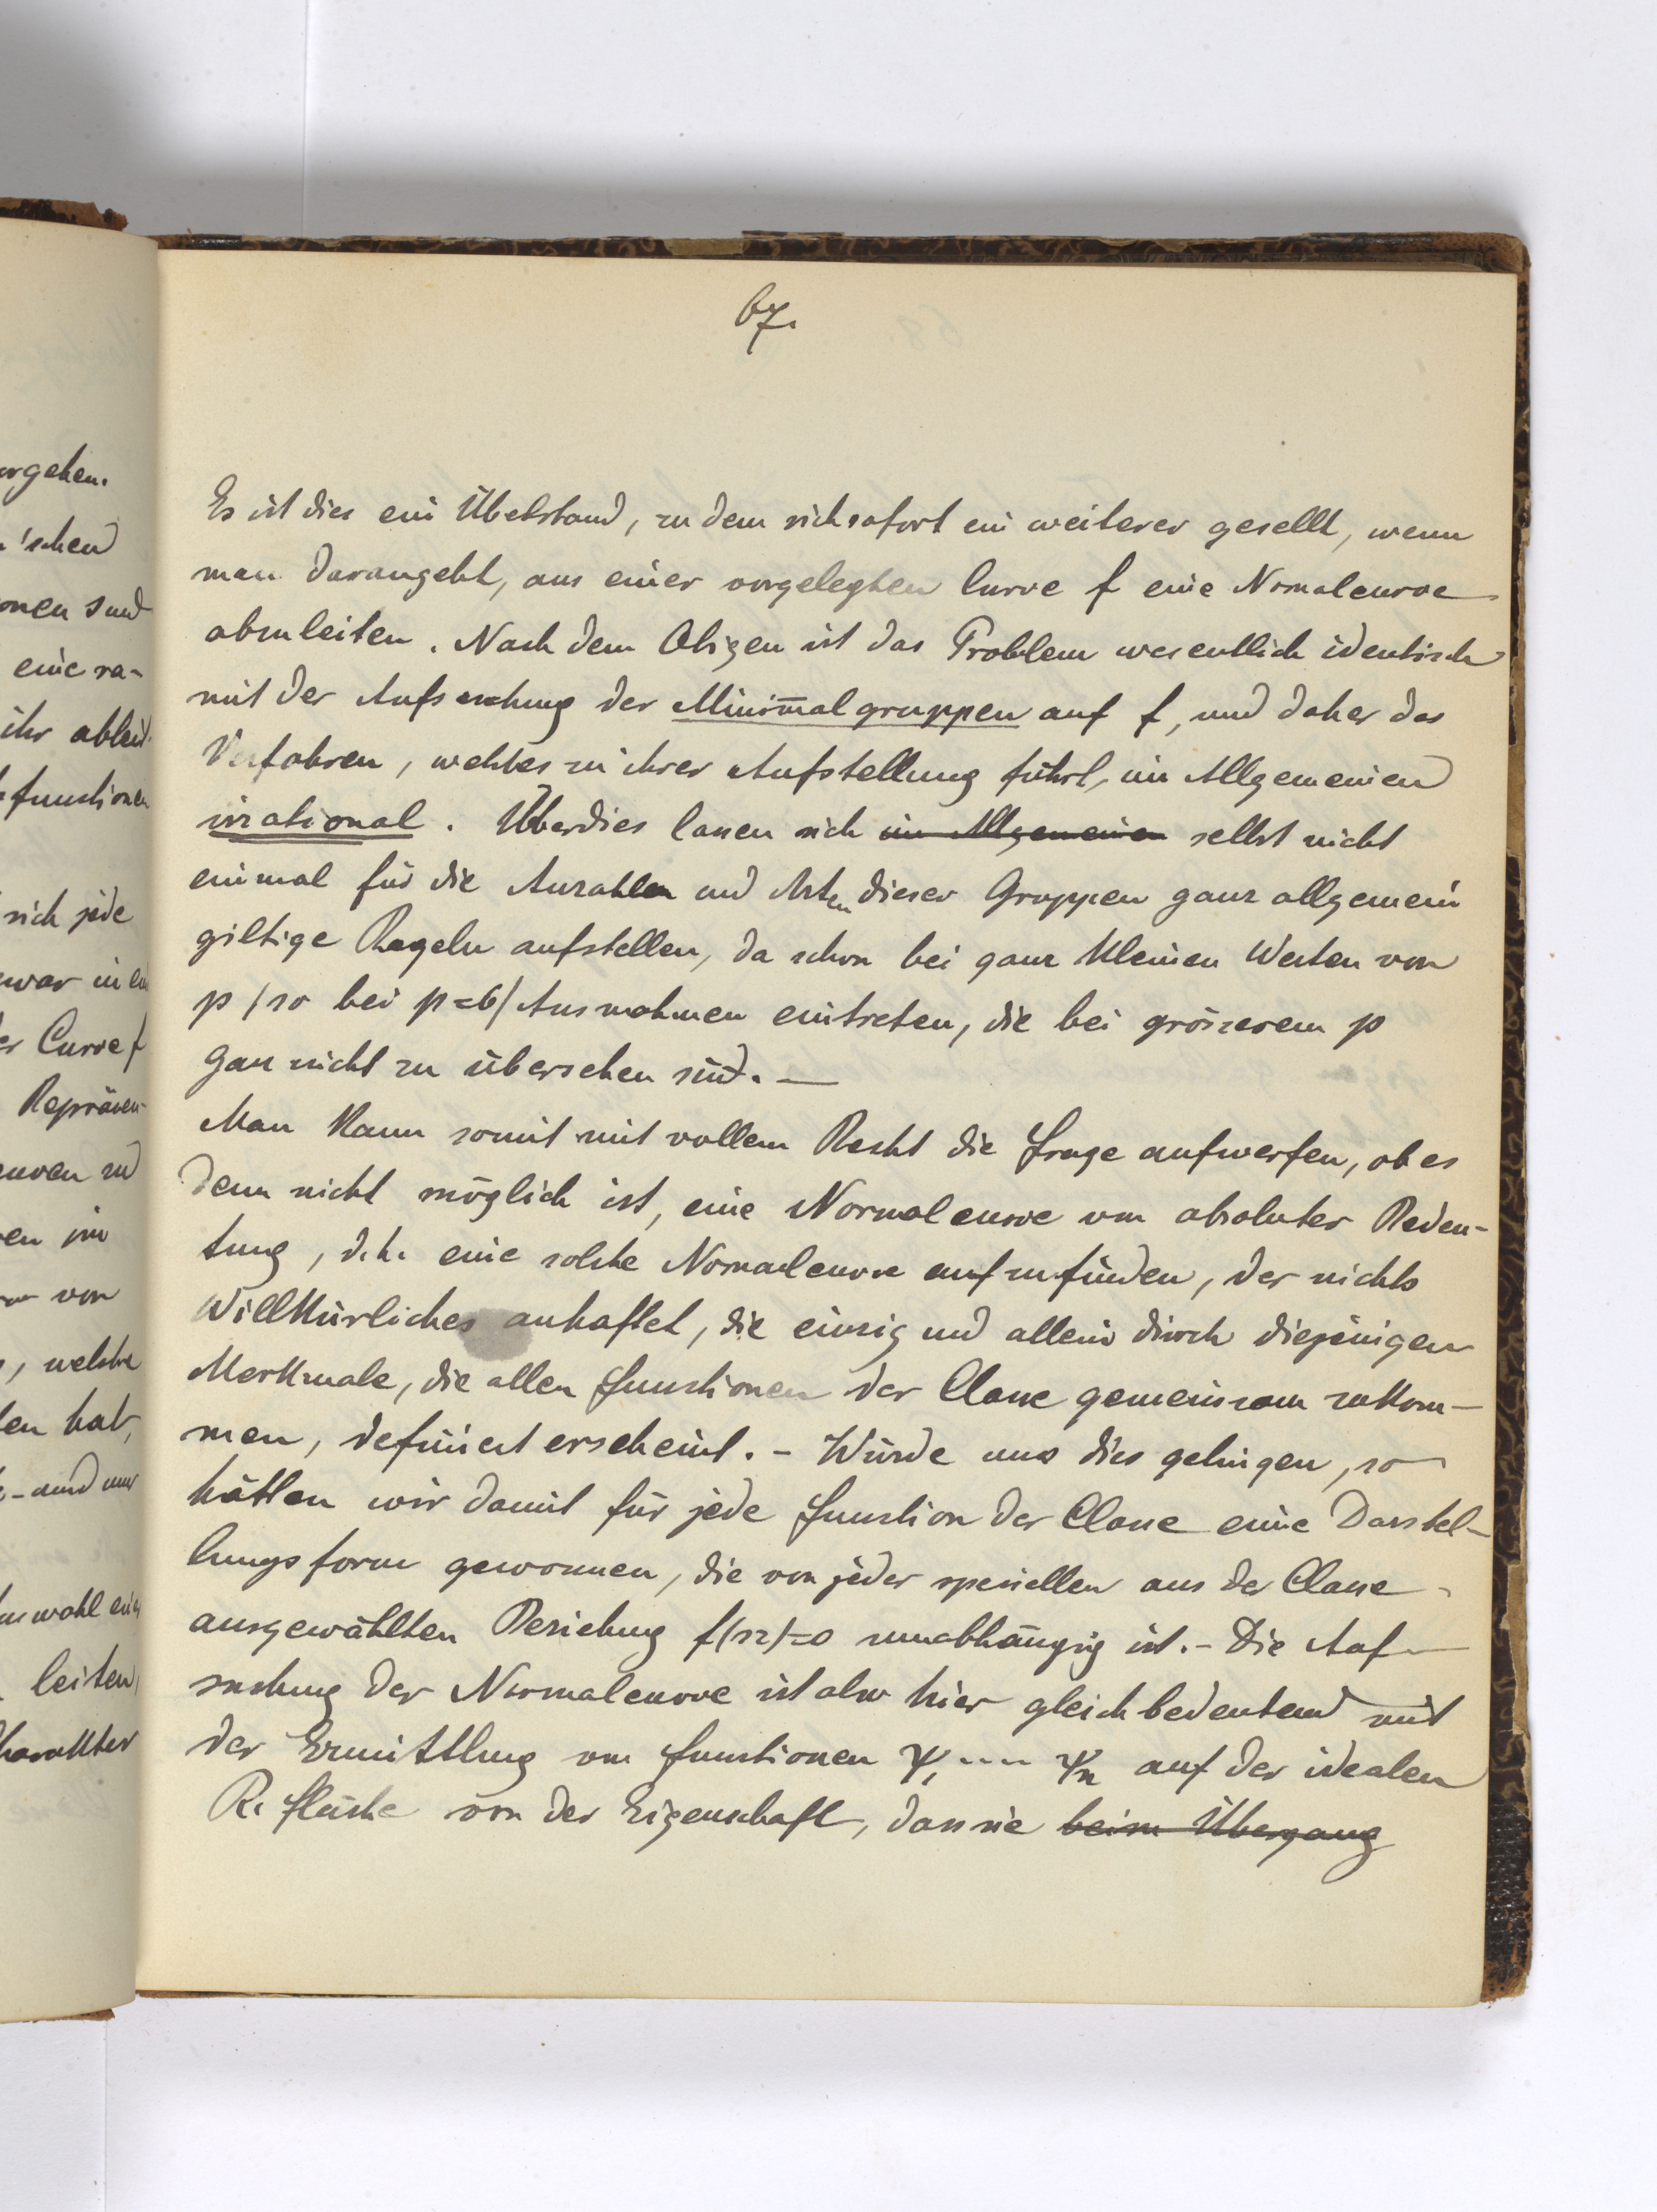 67.
Es ist dies ein Übelstand, zu dem sich sofort ein weiterer gesellt, wenn
man darangeht, aus einer vorgelegten Curve f eine Normalcurve
abzuleiten. Nach dem Obigen ist das Problem wesentlich identisch
mit der Aufsuchung der Minimalgruppen auf f, und daher das
Verfahren, welches zu ihrer Aufstellung führt, im Allgemeinen
irrational. Überdies lassen sich im Allgemeinen selbst nicht
einmal für die Anzahlen und Arten dieser Gruppen ganz allgemein
giltige Regeln aufstellen, da schon bei ganz kleinen Werten von
p (so bei p=6) Ausnahmen eintreten, die bei grösserem p
gar nicht zu übersehen sind. —
Man kann somit mit vollem Recht die Frage aufwerfen, ob es
denn nicht möglich ist, eine Normalcurve von absoluter Bedeu-
tung, d.h. eine solche Normalcurve aufzufinden, der nichts
Willkürliches anhaftet, die einzig und allein durch diejenigen
Merkmale, die allen Functionen der Classe gemeinsam zukom-
men, definiert erscheint. - Würde uns dies gelingen, so
hätten wir damit für jede Function der Classe eine Darstel-
lungsform gewonnen, die von jeder speciellen aus der Classe
ausgewählten Beziehung f(sz)=0 unabhängig ist. - Die Auf-
suchung der Normalcurve ist also hier gleichbedeutend mit
der Ermittlung von Functionen ψ₁ ---- ψₙ auf der idealen
R. fläche von der Eigenschaft, dass sie beim Übergang
orgehen.
'schen
onen sind
eine ra-
ihr ableit
functionen
sich jede
zwar in
Curve f
Repräsen-
en im
von
, welche
hat,
- und nur
leiten